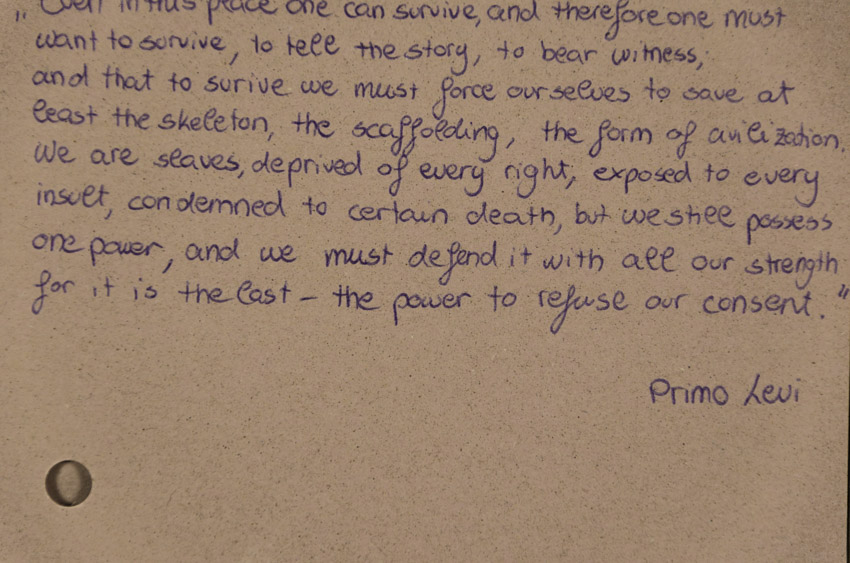 „Even in this place one can survive, and therefore one must
want to survive, to tell the story, to bear witness;
and that to surive we must force ourselves to save at
least the skeleton, the scaffolding, the form of civilization.
We are slaves, deprived of every right, exposed to every
insult, condemned to certain death, but we still possess
one power, and we must defend it with all our strength
for it is the last – the power to refuse our consent."
Primo Levi